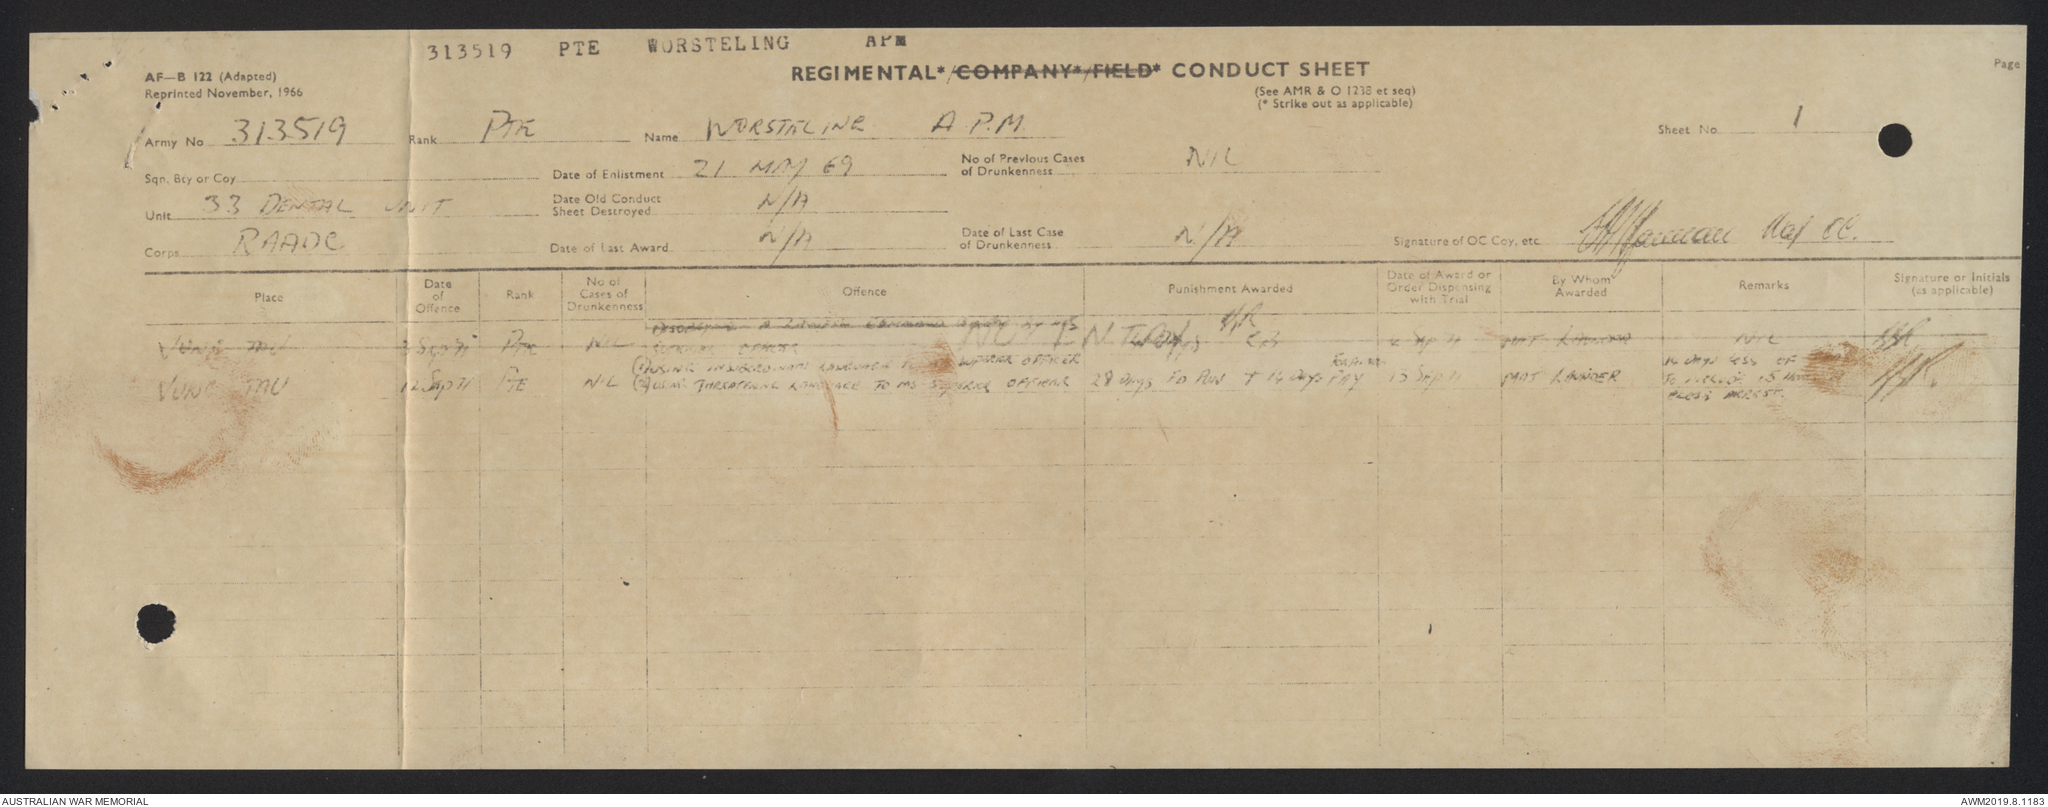 313519 PTE WORSTELING APM
AF—B 122 (Adapted)
Reprinted November, 1966
REGIMENTAL*/COMPANY*/FIELD* CONDUCT SHEET
Page
(See AMR & O 1238 et seq)
(* Strike out as applicable)
Army No 313519 Rank PTE Name WORSTELING A.P.M. Sheet No 1
Sqn, Bty or Coy Date of Enlistment 21 MAY 69 No of Previous Cases of Drunkenness NIL
Unit 33 DENTAL UNIT Date Old Conduct Sheet Destroyed N/A
Corps RAADC Date of Last Award N/A Date of Last Case of Drunkenness N/A Signature of OC Coy, etc Maj OC.
Place Date of Offence Rank No of Cases of Drunkenness Offence Punishment Awarded Date of Award or Order Dispensing with Trial By Whom Awarded Remarks Signature or Initials (as applicable)
VUNG TAU Sep 71 PTE NIL DISOBEYED A LAWFUL COMMAND BY HIS SUPERIOR OFFICER CB Sep 71 MAJ NIL
(1) USING INSUBORDINATE LANGUAGE TO SUPERIOR OFFICER
VUNG TAU 12 Sep 71 PTE NIL (2) USING THREATENING LANGUAGE TO HIS SUPERIOR OFFICER 28 Days FD PUN + 14 Days PAY 13 Sep 71 MAJ
14 DAYS LESS OF
TO INCLUDE
CLOSE ARREST.
AUSTRALIAN WAR MEMORIAL
AWM2019.8.1183